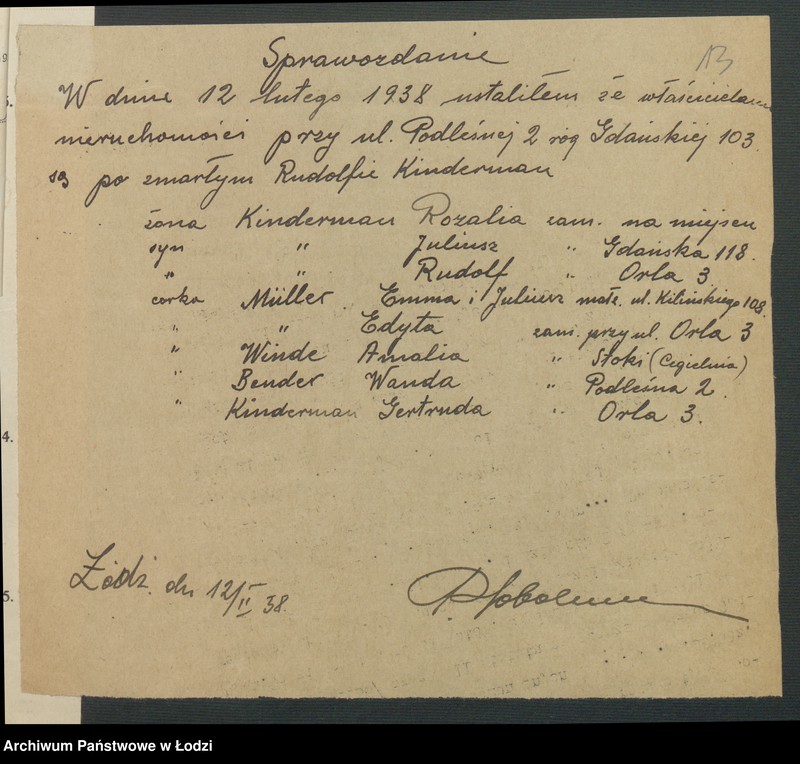 Sprawozdanie
13
W dniu 12 lutego 1938 ustaliłem że właścicielami
nieruchomości przy ul. Podleśnej 2 róg Gdańskiej 103
są po zmarłym Rudolfie Kinderman
żona Kinderman Rozalia zam. na miejscu
syn " Juliusz " Gdańska 118.
" " Rudolf " Orla 3
corka Müller Emma i Juliusz małż. ul. Kilińskiego 108.
" " Edyta zam. przy ul. Orla 3
" Winde Amalia " Stoki (Cegielnia)
" Bender Wanda " Podleśna 2.
" Kinderman Gertruda " Orla 3.
Łódź. dn 12/II 38.
4.
5.
Archiwum Państwowe w Łodzi